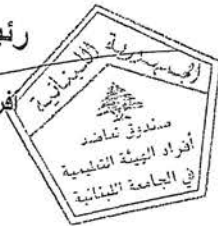 الجمهورية اللبنانية
صندوق تعاضد
أفراد الهيئة التعليمية
في الجامعة اللبنانية